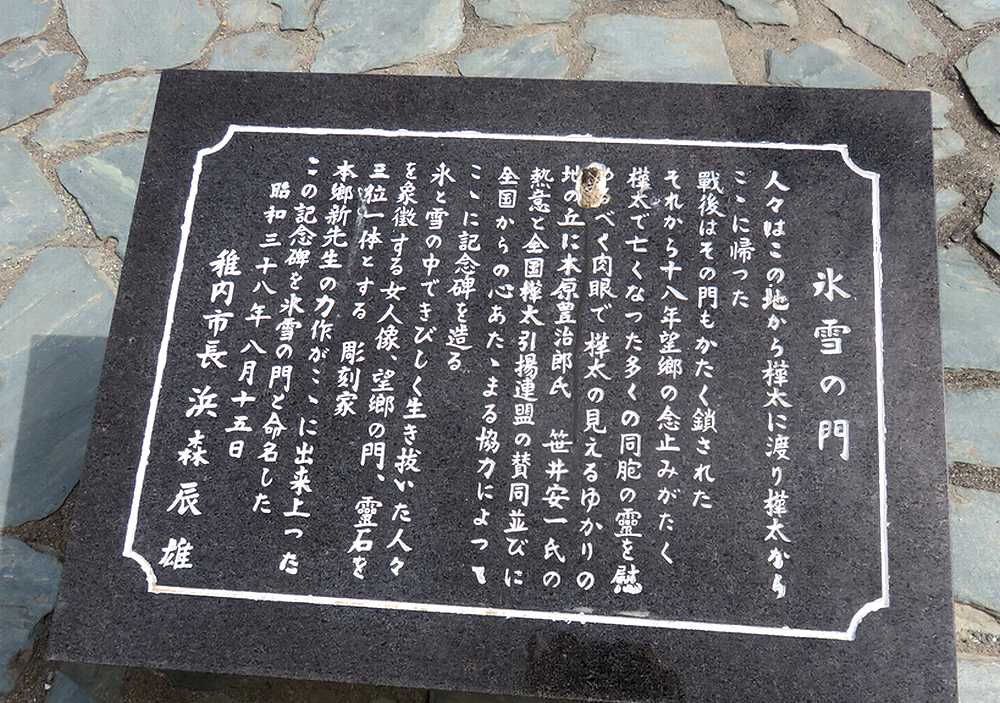 氷雪の門
人々はこの地から樺太に渡り樺太から
ここに帰った
戦後はその門もかたく鎖された
それから十八年望郷の念止みがたく
樺太で亡くなった多くの同胞の靈を慰
るべく肉眼で樺太の見えるゆかりの
地の丘に木原豊治郎氏 笹井安一氏の
熱意と全国樺太引揚連盟の賛同並びに
全国からの心あたゝまる協力によって
ここに記念碑を造る
氷と雪の中できびしく生き抜いた人々
を象徴する女人像、望郷の門、靈石を
三位一体とする 彫刻家
本郷新先生の力作がこゝに出来上った
この記念碑を氷雪の門と命名した
昭和三十八年八月十五日
稚内市長 浜森辰雄